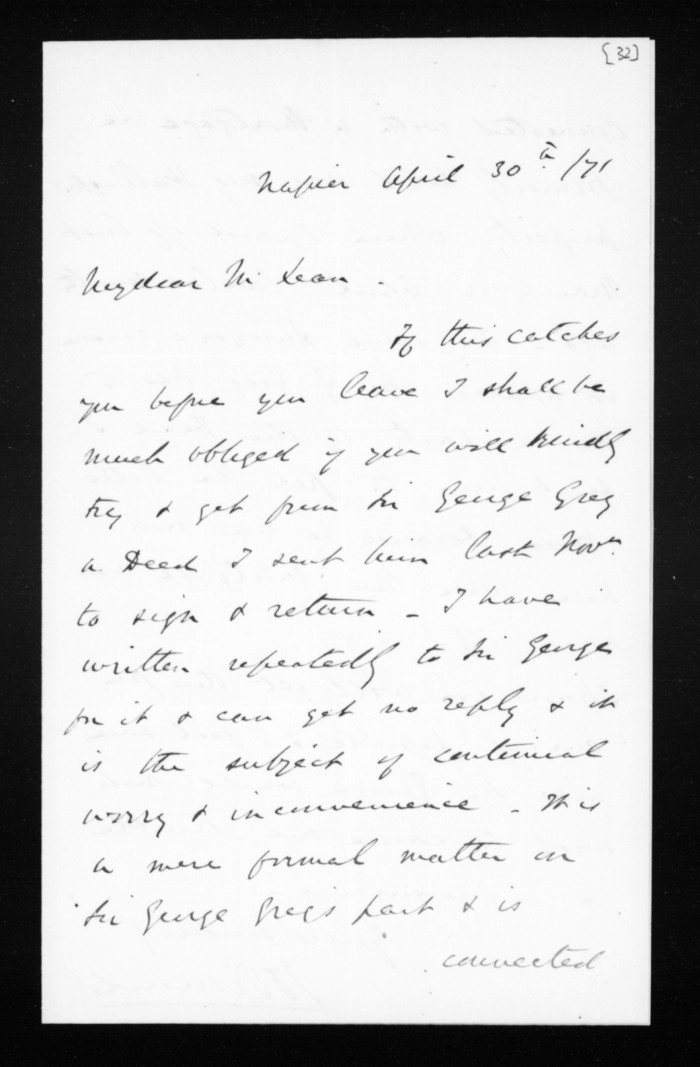 [32]
Napier April 30th /71
My dear McLean -
If this catches
you before you leave I shall be
much obliged if you will kindly
try & get from Sir George Grey
a Deed I sent him last Novr.
to sign & return - I have
written repeatedly to Sir George
for it & can get no reply & it
is the subject of continual
worry & inconvenience - It is
a mere formal matter on
Sir George Grey's part & is
connected